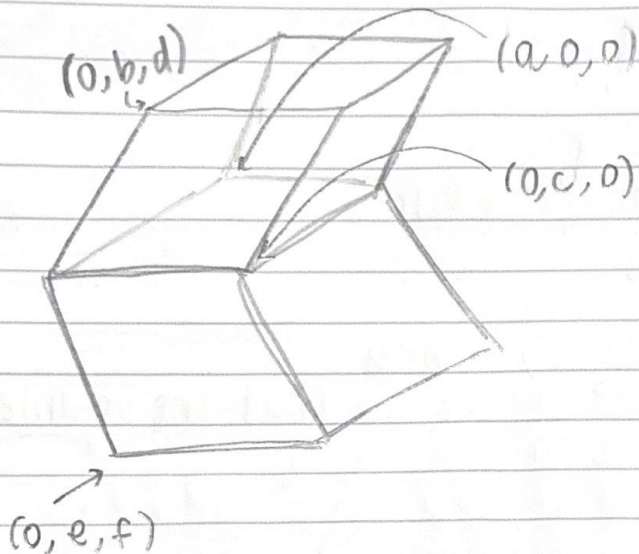 (0,b,d)
(a,0,0)
(0,c,0)
(0,e,f)